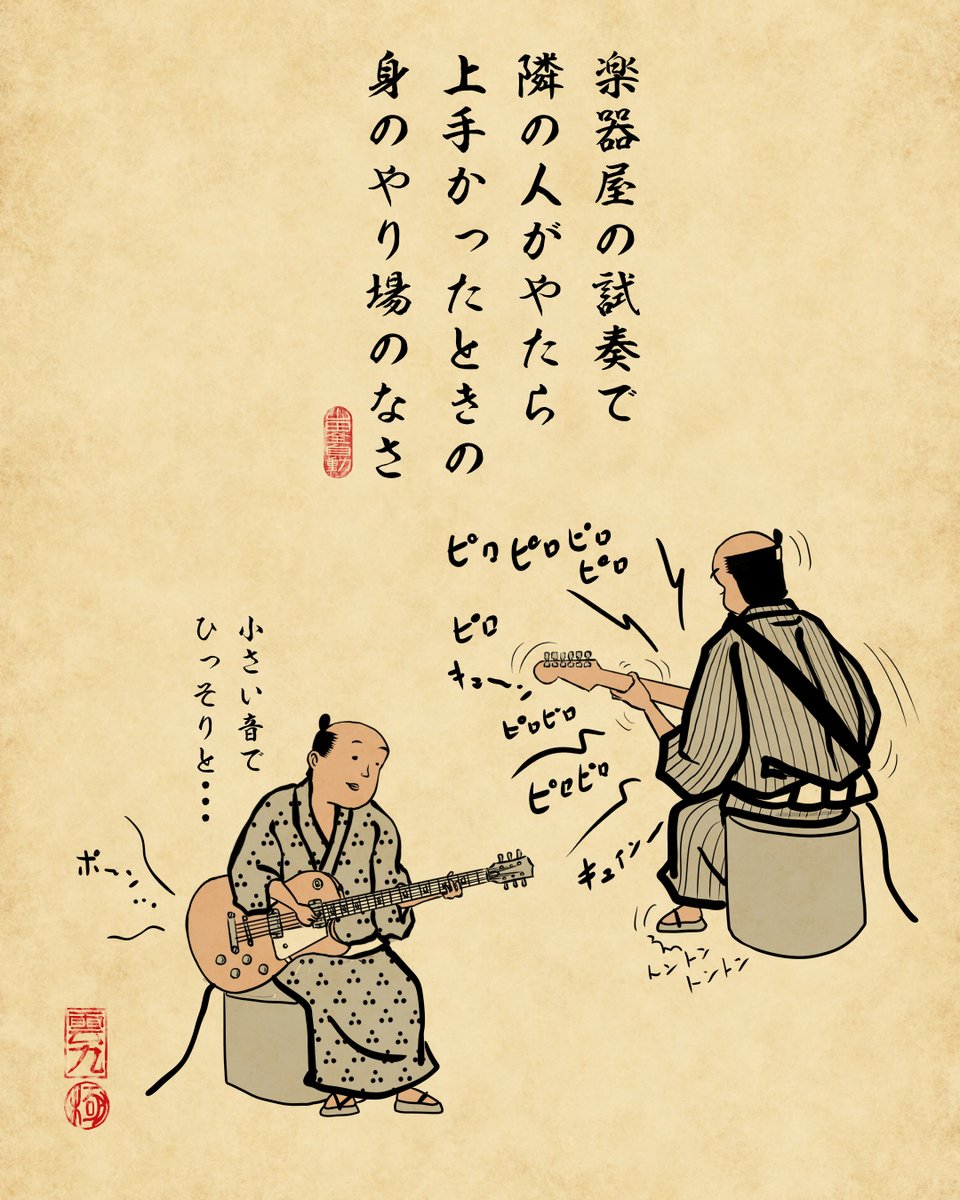 楽器屋の試奏で
隣の人がやたら
上手かったときの
身のやり場のなさ
ピロピロピロ
ピロ
ピロ
キューン
ピロピロ
ピロピロ
キュイン
トントン
トントン
小さい音で
ひっそりと・・・
ポーン…